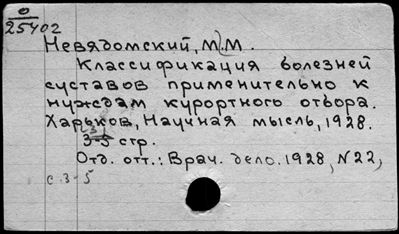 0
25402
Невядомский, М.М.
Классификация болезней
суставов применительно к
нуждам курортного отбора.
Харьков, Научная мысль, 1928.
3-5 стр.
Отд. отт.: Врач. дело. 1928, N22,
с. 3-5